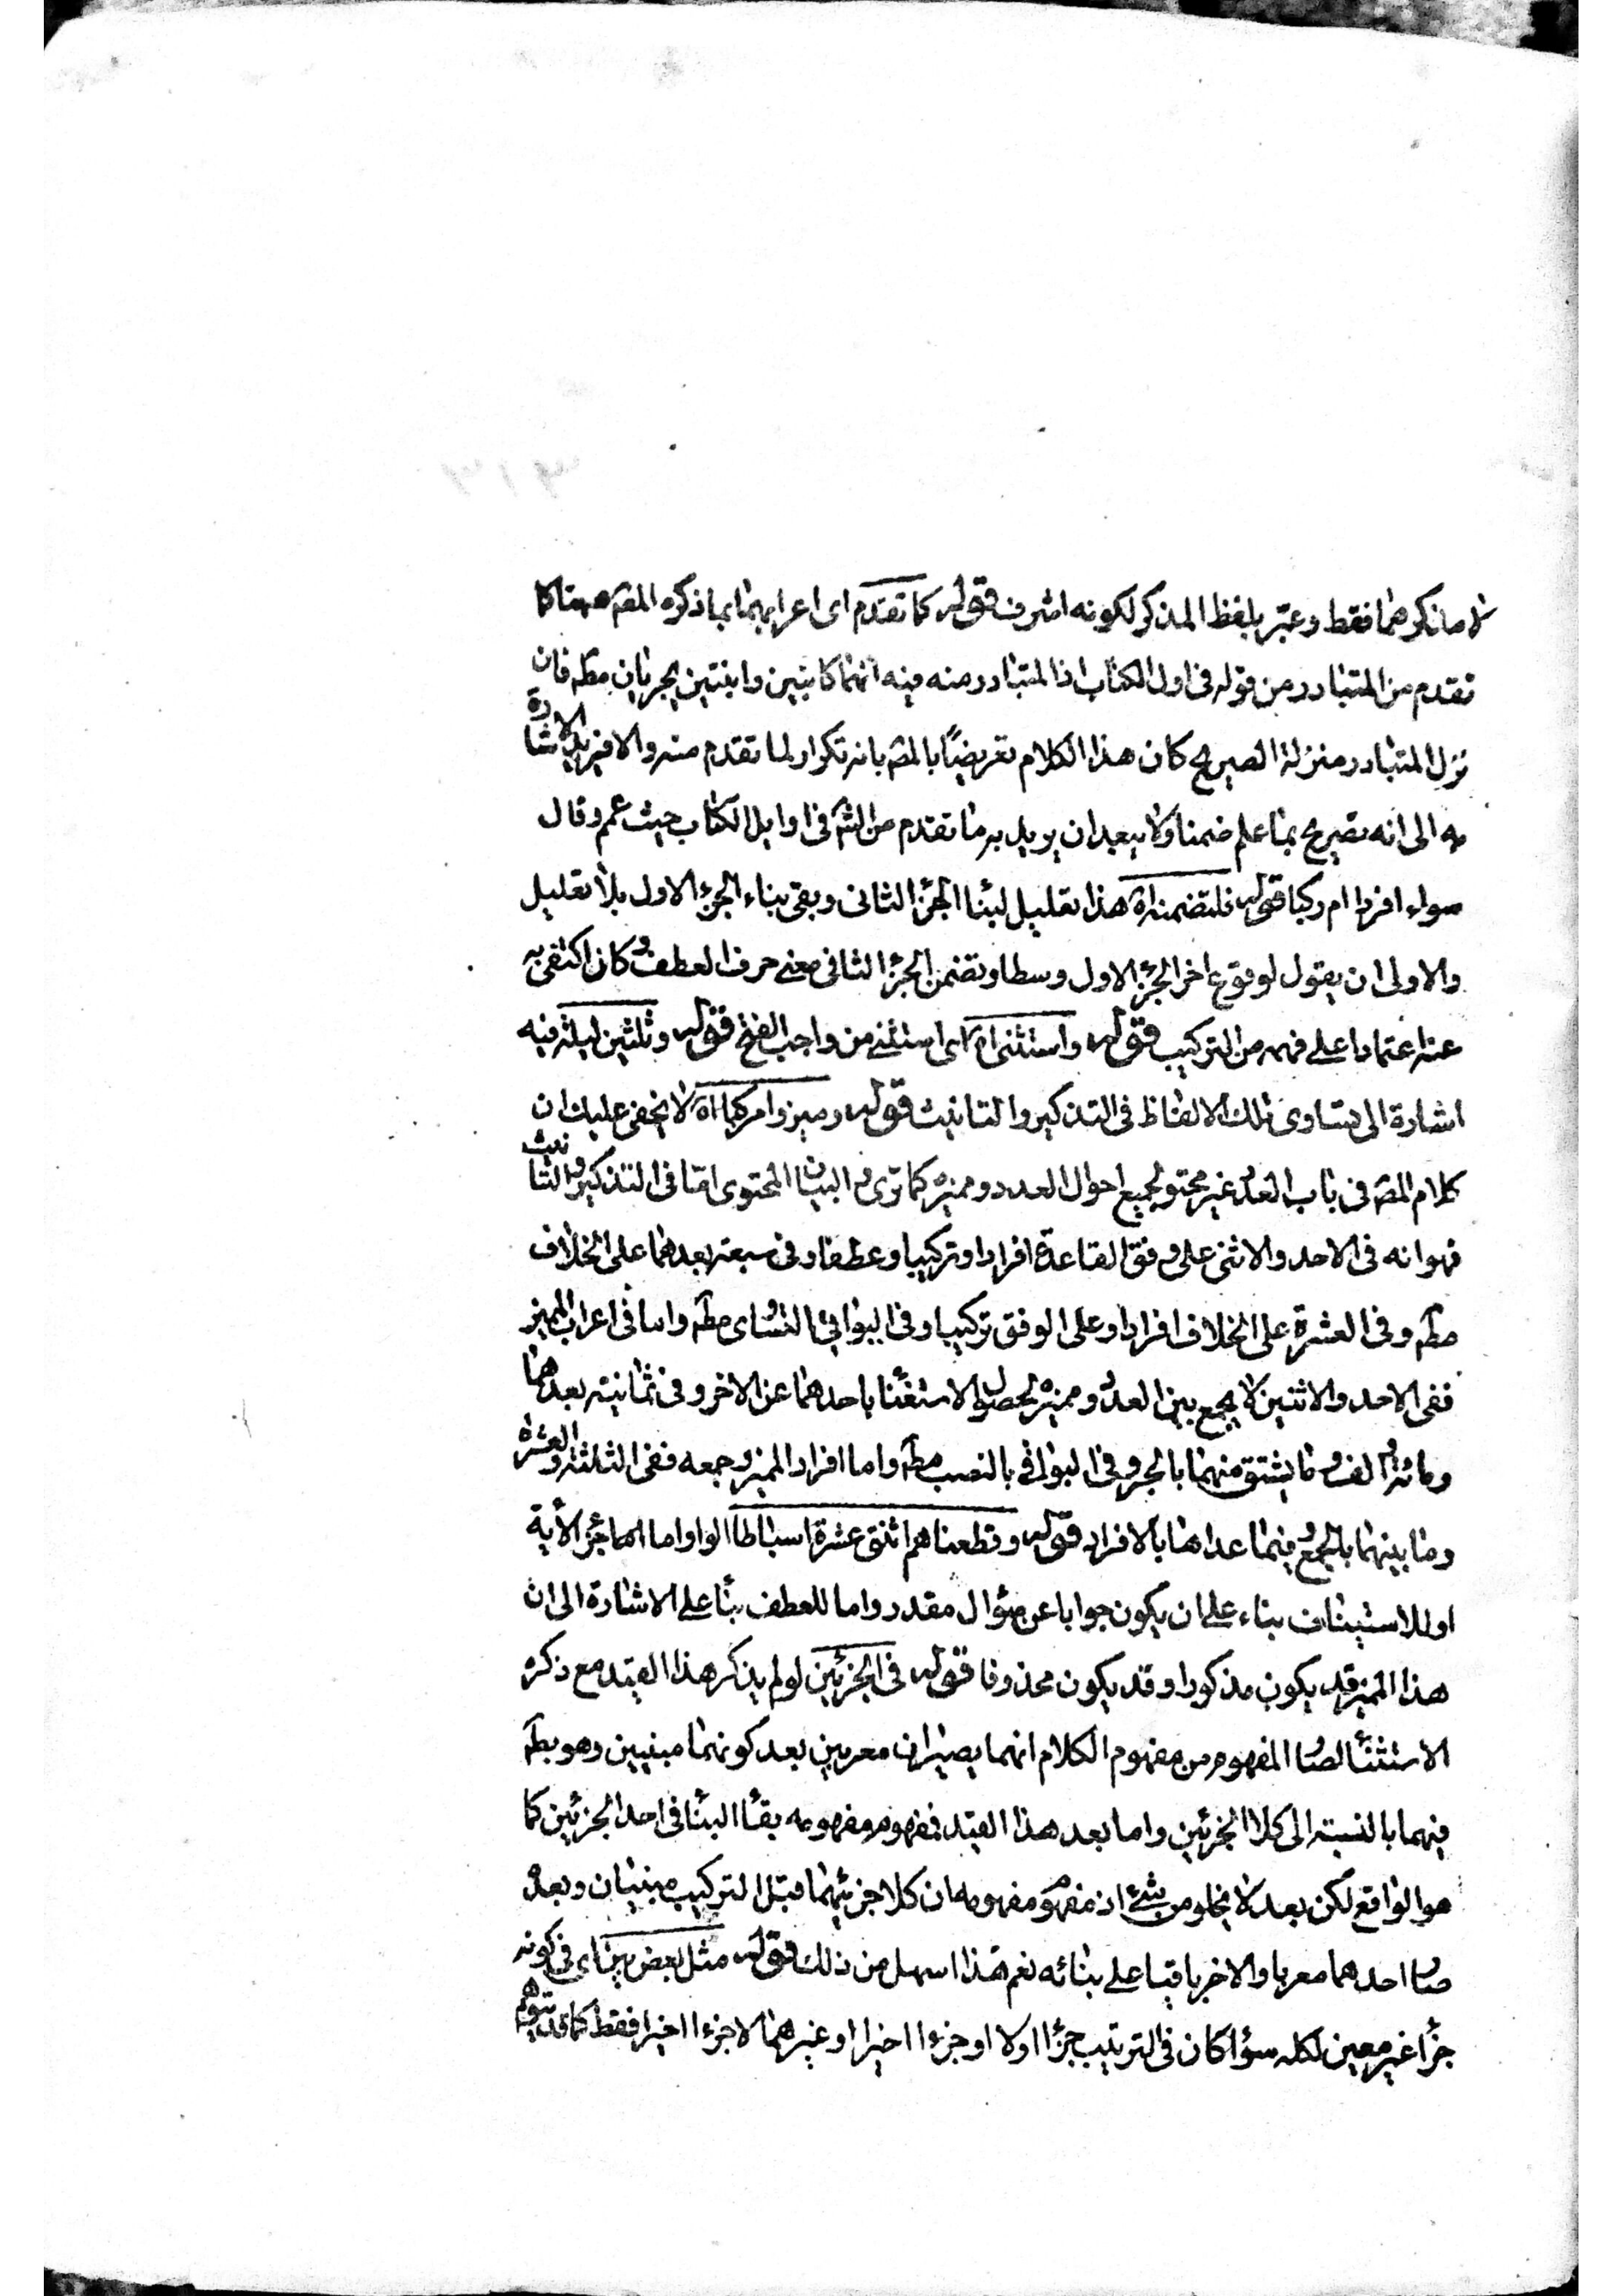 لا مذكرهما فقط وعبّر بلفظ المذكر لكونه اشرف قوله كما تقدم اى اعرابهما بما ذكره المص ههنا كما
تقدم من المتبادر من قوله فى اول الكتاب اذ المتبادر منه فيه انهما كابنين وابنتين يجريان مطه فان
نزل المتبادر منزلة الصريح كان هذا الكلام تعريضًا بالمص بانه تكرار لما تقدم منه والا فيريد الاشارة
به الى انه تصريح بما علم ضمنا ولا يبعد ان يريد به ما تقدم من الش فى اوايل الكتاب حيث عمم وقال
سواء افردا ام ركبا قوله فلتضمنه اه هذا تعليل لبنا الجزء الثانى وبقى بناء الجزء الاول بلا تعليل
والاولى ان يقول لوقوع اخر الجزء الاول وسطا وتضمن الجزء الثانى معنى حرف العطف وكان اكتفى به
عنه اعتمادا على فهمه من التركيب قوله واستثنى اه اى استثنى من واجب الفتح قوله وثلثين ليلة فيه
اشارة الى تساوى تلك الالفاظ فى التذكير والتانيث قوله وميزوا مركبا اه لا يخفى عليك ان
كلام المص فى باب العدد غير محتو لجميع احوال العدد ومميزه كما ترى والبيان المحتوى امّا فى التذكير والتانيث
فهو انه فى الاحد والاثنى على وفق القاعدة افرادا وتركيبا وعطفا وفى سبعة بعدهما على الخلاف
مطه وفى العشرة على الخلاف افرادا وعلى الوفق تركيبا وفى البواقى التساوى مطه واما فى اعراب المميز
ففى الاحد والاثنين لا يجمع بين العدد ومميزه لحصول الاستغنا باحدهما عن الاخر وفى ثمانية بعدهما
ومائة والف وما يشتق منهما بالجر وفى البواقى بالنصب مطه واما افراد المميز وجمعه ففى الثلثة والعشرة
وما بينهما بالجمع وفيما عداها بالافراد قوله وقطعناهم اثنتى عشرة اسباطا الواو اما جزء الآية
او للاستيناف بناء على ان يكون جوابا عن سؤال مقدر واما للعطف بنا على الاشارة الى ان
هذا المميز قد يكون مذكورا وقد يكون محذوفا قوله فى الجزئين لو لم يذكر هذا القيد مع ذكره
الاستثنا لصار المفهوم من مفهوم الكلام انهما يصيران معربين بعد كونهما مبنيين وهو بطه
فيهما بالنسبة الى كلا الجزئين واما بعد هذا القيد فمفهوم مفهومه بقا البنا فى احد الجزئين كما
هو الواقع لكن بعد لا يخلو من شئ اذ مفهوم مفهومه ان كلا جزئيهما قبل التركيب مبنيان وبعده
صار احدهما معربا والاخر باقيا على بنائه نعم هذا اسهل من ذلك قوله مثل بعض بين اى فى كونه
جزأ غير معين لكله سوا كان فى الترتيب جزأ اولا او جزءا اخيرا او غيرهما لا جزءا اخيرا فقط كما قد يتوهم